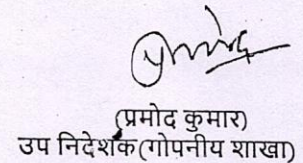 प्रमोद
(प्रमोद कुमार)
उप निदेशक(गोपनीय शाखा)